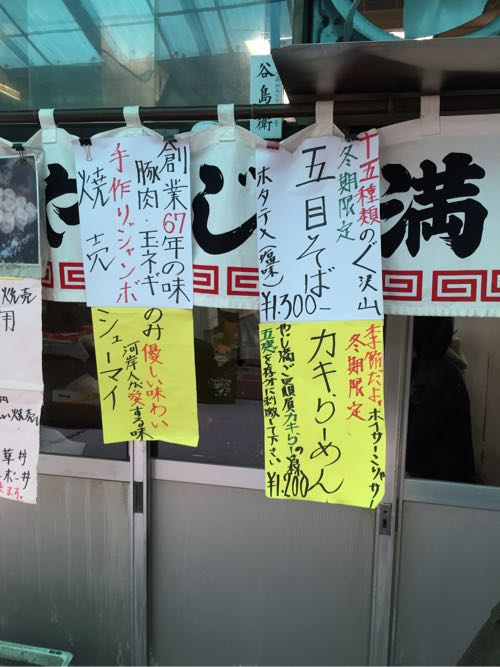 十五種類のぐ沢山
冬期限定
五目そば
ホタテ入(塩味)
¥1.300-
季節だよ。ホイサーこりゃサー
冬期限定
カキらーめん
やじ満ご贔屓カキらーの
五感を存分に刺激して下さい
¥1.200
創業67年の味
豚肉・玉ネギ
手作りジャンボ
焼売
のみ優しい味わい
河岸人が愛する味
シューマイ
やじ満
谷島衛
焼売
円
い焼売
草丼
ーポー丼
ます。